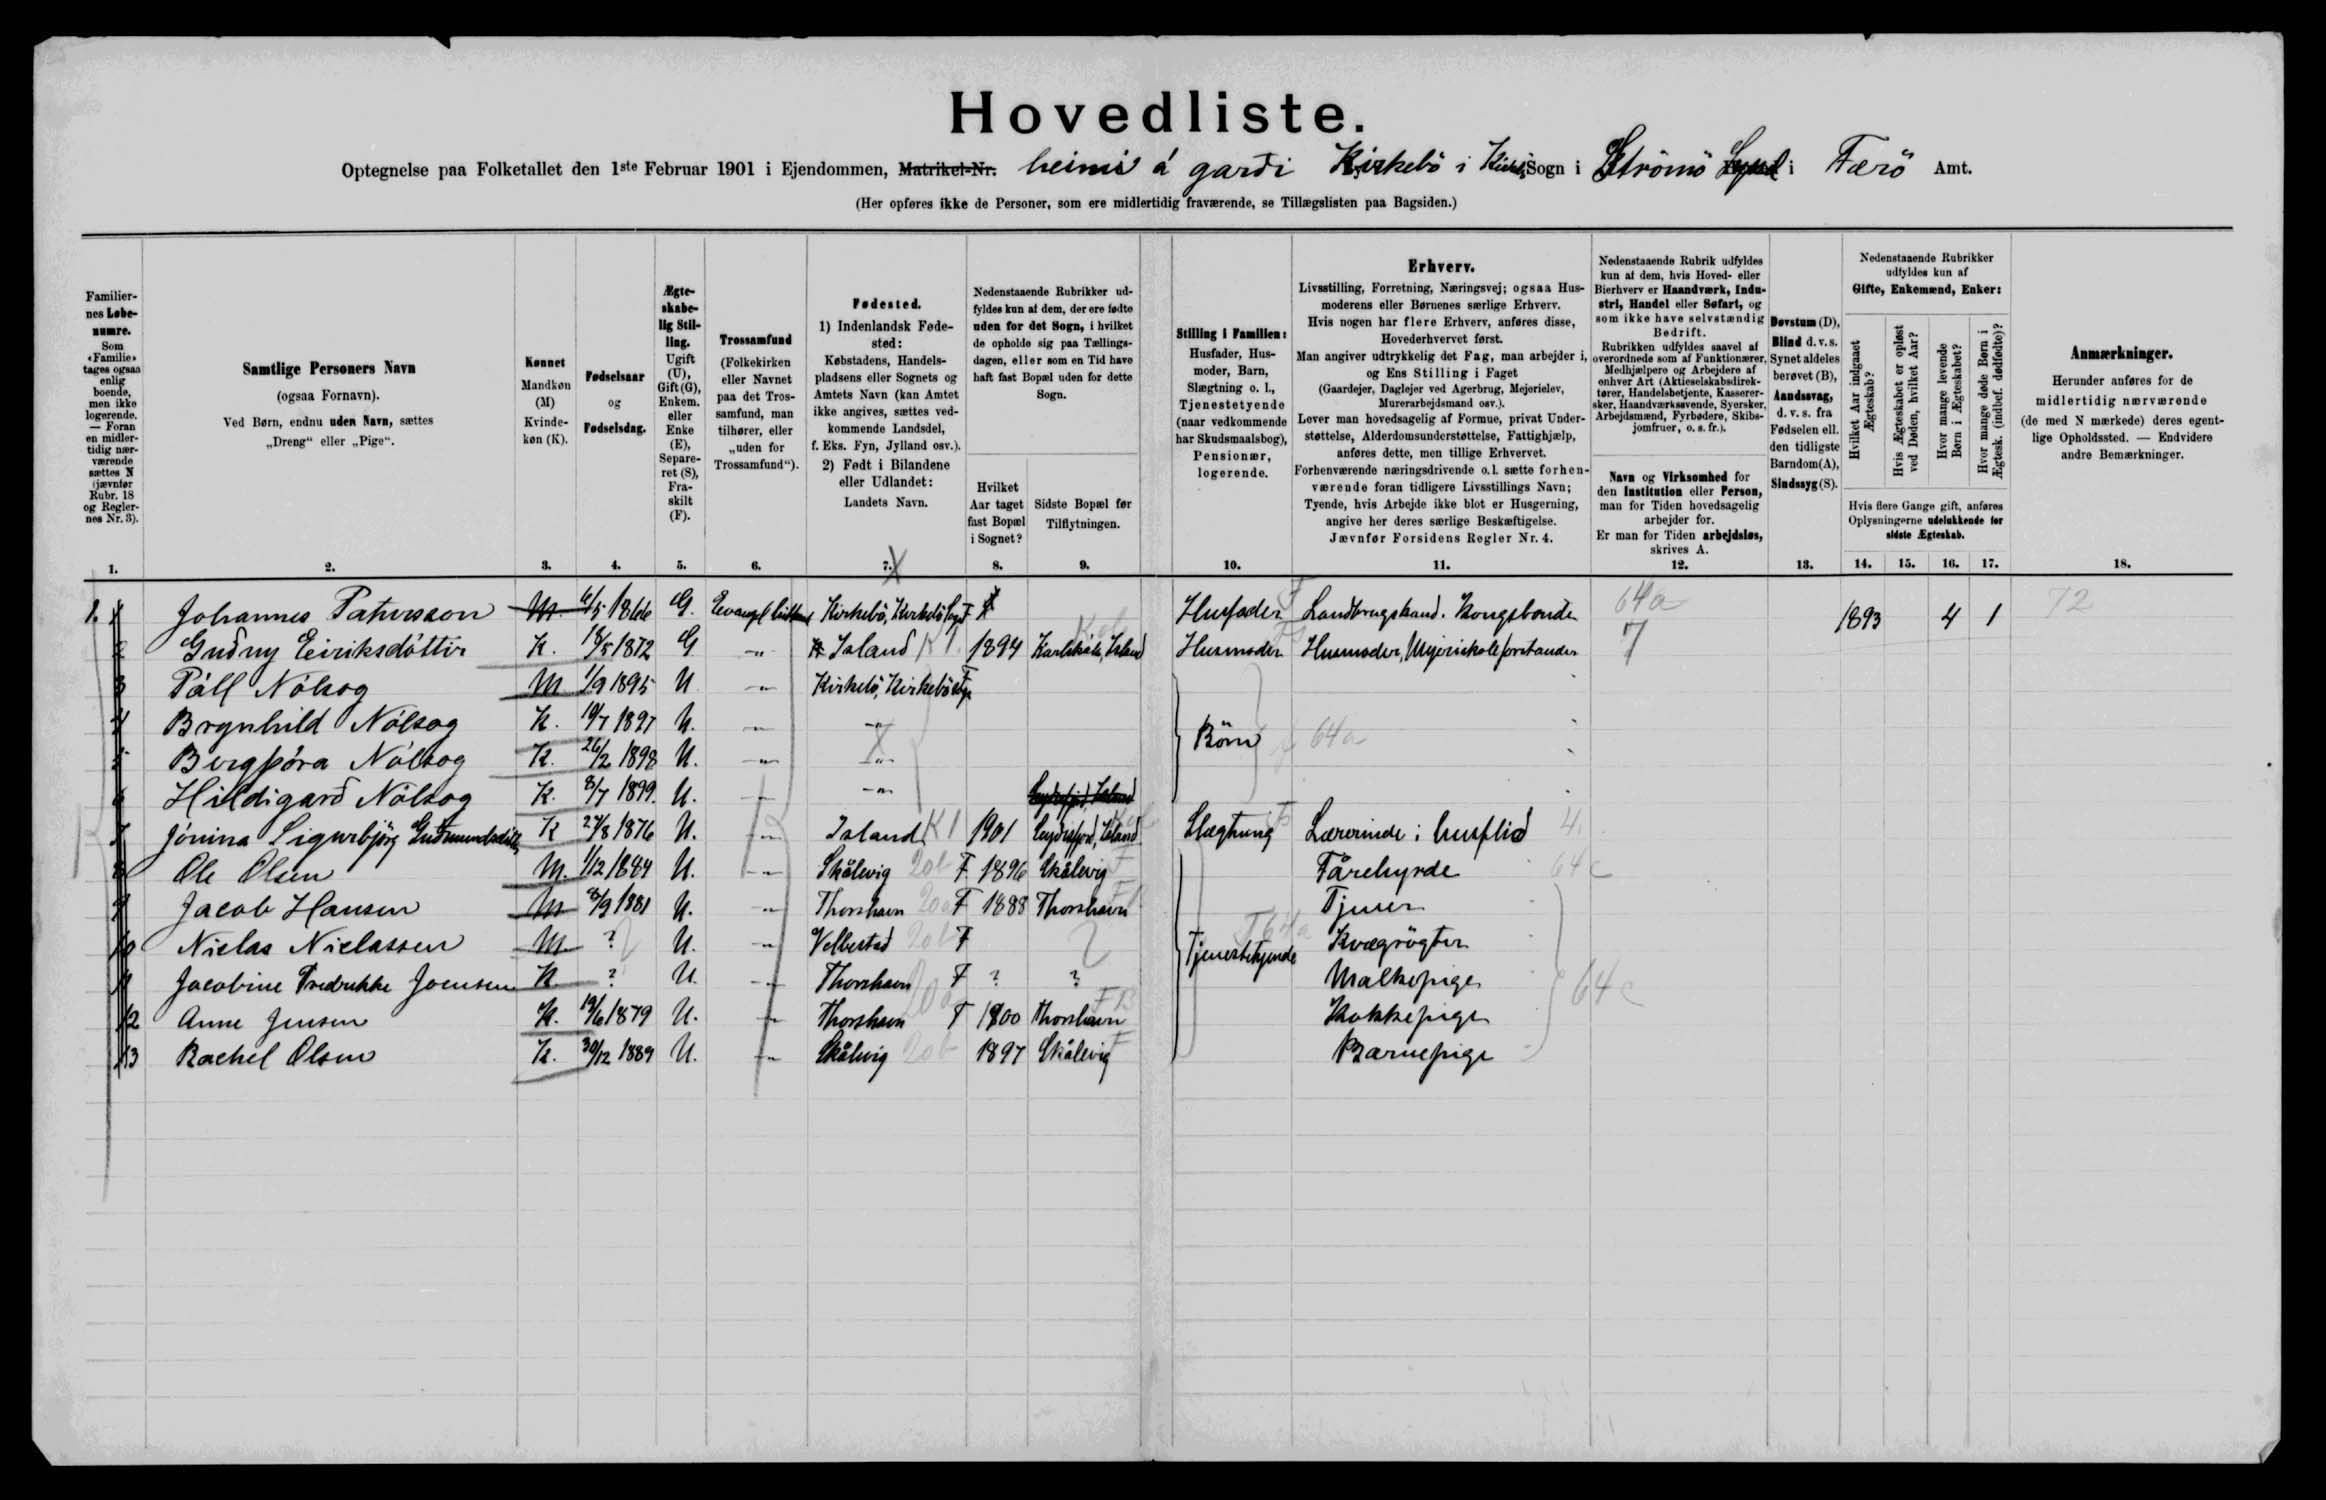 Hovedliste.
Optegnelse paa Folketallet den 1ste Februar 1901 i Ejendommen, Matrikel-Nr. heimi á garði Kirkebö i Sogn i Strömö i Færö Amt.
(Her opføres ikke de Personer, som ere midlertidig fraværende, se Tillægslisten paa Bagsiden.)
Familiernes Løbenumre.
Som «Familie» tages ogsaa enlig boende, men ikke logerende. — Foran en midlertidig nærværende sættes N (jævnfør Rubr. 18 og Reglernes Nr. 3).
Samtlige Personers Navn
(ogsaa Fornavn).
Ved Børn, endnu uden Navn, sættes
„Dreng“ eller „Pige“.
Kønnet
Mandkøn (M)
Kvindekøn (K).
Fødselsaar
og
Fødselsdag.
Ægteskabelig Stilling.
Ugift (U), Gift (G), Enkem. eller Enke (E), Separeret (S), Fraskilt (F).
Trossamfund
(Folkekirken eller Navnet paa det Trossamfund, man tilhører, eller „uden for Trossamfund“).
Fødested.
1) Indenlandsk Fødested:
Købstadens, Handelspladsens eller Sognets og Amtets Navn (kan Amtet ikke angives, sættes vedkommende Landsdel, f. Eks. Fyn, Jylland osv.).
2) Født i Bilandene eller Udlandet:
Landets Navn.
Nedenstaaende Rubrikker udfyldes kun af dem, der ere fødte uden for det Sogn, i hvilket de opholde sig paa Tællingsdagen, eller som en Tid have haft fast Bopæl uden for dette Sogn.
Hvilket Aar taget fast Bopæl i Sognet?
Sidste Bopæl før Tilflytningen.
Stilling i Familien:
Husfader, Husmoder, Barn, Slægtning o. l., Tjenestetyende (naar vedkommende har Skudsmaalsbog), Pensionær, logerende.
Erhverv.
Livsstilling, Forretning, Næringsvej; ogsaa Husmoderens eller Børnenes særlige Erhverv.
Hvis nogen har flere Erhverv, anføres disse, Hovederhvervet først.
Man angiver udtrykkelig det Fag, man arbejder i, og Ens Stilling i Faget
(Gaardejer, Daglejer ved Agerbrug, Mejerielev, Murerarbejdsmand osv.).
Lever man hovedsagelig af Formue, privat Understøttelse, Alderdomsunderstøttelse, Fattighjælp, anføres dette, men tillige Erhvervet.
Forhenværende næringsdrivende o. l. sætte forhenværende foran tidligere Livsstillings Navn;
Tyende, hvis Arbejde ikke blot er Husgerning, angive her deres særlige Beskæftigelse.
Jævnfør Forsidens Regler Nr. 4.
Nedenstaaende Rubrik udfyldes kun af dem, hvis Hoved- eller Bierhverv er Haandværk, Industri, Handel eller Søfart, og som ikke have selvstændig Bedrift.
Rubrikken udfyldes saavel af overordnede som af Funktionærer, Medhjælpere og Arbejdere af enhver Art (Aktieselskabsdirektører, Handelsbetjente, Kasserersker, Haandværkssvende, Syersker, Arbejdsmænd, Fyrbødere, Skibsjomfruer, o. s. fr.).
Navn og Virksomhed for den Institution eller Person, man for Tiden hovedsagelig arbejder for.
Er man for Tiden arbejdsløs, skrives A.
Døvstum (D), Blind d. v. s. Synet aldeles berøvet (B), Aandssvag, d. v. s. fra Fødselen ell. den tidligste Barndom (A), Sindssyg (S).
Nedenstaaende Rubrikker udfyldes kun af
Gifte, Enkemænd, Enker:
Hvilket Aar indgaaet Ægteskab?
Hvis Ægteskabet er opløst ved Døden, hvilket Aar?
Hvor mange levende Børn i Ægteskabet?
Hvor mange døde Børn i Ægtesk. (indbef. dødfødte)?
Hvis flere Gange gift, anføres Oplysningerne udelukkende for sidste Ægteskab.
Anmærkninger.
Herunder anføres for de midlertidig nærværende (de med N mærkede) deres egentlige Opholdssted. — Endvidere andre Bemærkninger.
1. 2. 3. 4. 5. 6. 7. 8. 9. 10. 11. 12. 13. 14. 15. 16. 17. 18.
1. 1 Johannes Patursson M. 6/5 1866 G. Kirkebö, Kirkebö Husfader Landbrugskand. Kongsbonde 64a 1893 4 1 72
2 Guðny Eiriksdóttir K. 18/5 1872 G -"- Island K 1. 1894 Island Husmoder Husmoder, Mejeriskoleforstander 7
3 Páll Nólsog M 1/9 1895 U -"- Kirkebö, Kirkebö
4 Brynhild Nólsog K. 19/7 1897 U. -"- -"- Börn 64a
5 Bergþóra Nólsog K. 26/2 1898 U. -"- -"-
6 Hildigarð Nólsog K. 8/7 1899. U. -"- -"-
7 Jónina Sigurbjörg K 27/8 1876 U. -"- Island K 1 1901 Seydisfjord, Island Slægtning Lærerinde i husflid 4.
8 Ole Olsen M. 1/12 1884 U. -"- Skålevig 20b F 1896 Skålevig F Fårehyrde 64c
9 Jacob Hansen M 8/9 1881 U. -"- Thorshavn 20a F 1888 Thorshavn Tjener
10 Niclas Niclassen M. ? U. -"- Velbestad 20b F Tjenestetyende Kvægrögter
11 Jacobine Fredrikke Joensen K. ? U. -"- Thorshavn F ? ? Malkepige 64c
12 Anne Jensen K. 19/6 1879 U. -"- Thorshavn 20a F 1900 Thorshavn Kokkepige
13 Rachel Olsen K. 30/12 1889 U. -"- Skålevig 20b 1897 Skålevig F Barnepige